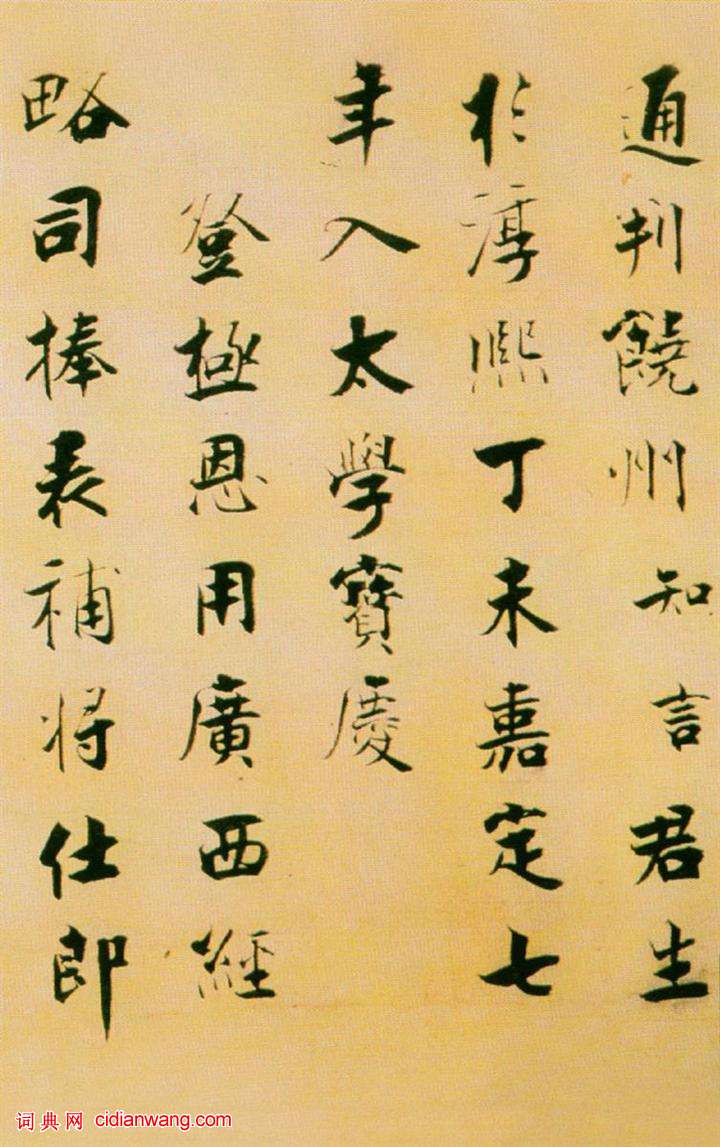 通判饒州知言君生
於淳熙丁未嘉定七
年入太學寶慶
登極恩用廣西經
略司捧表補將仕郎
词典网 cidianwang.com